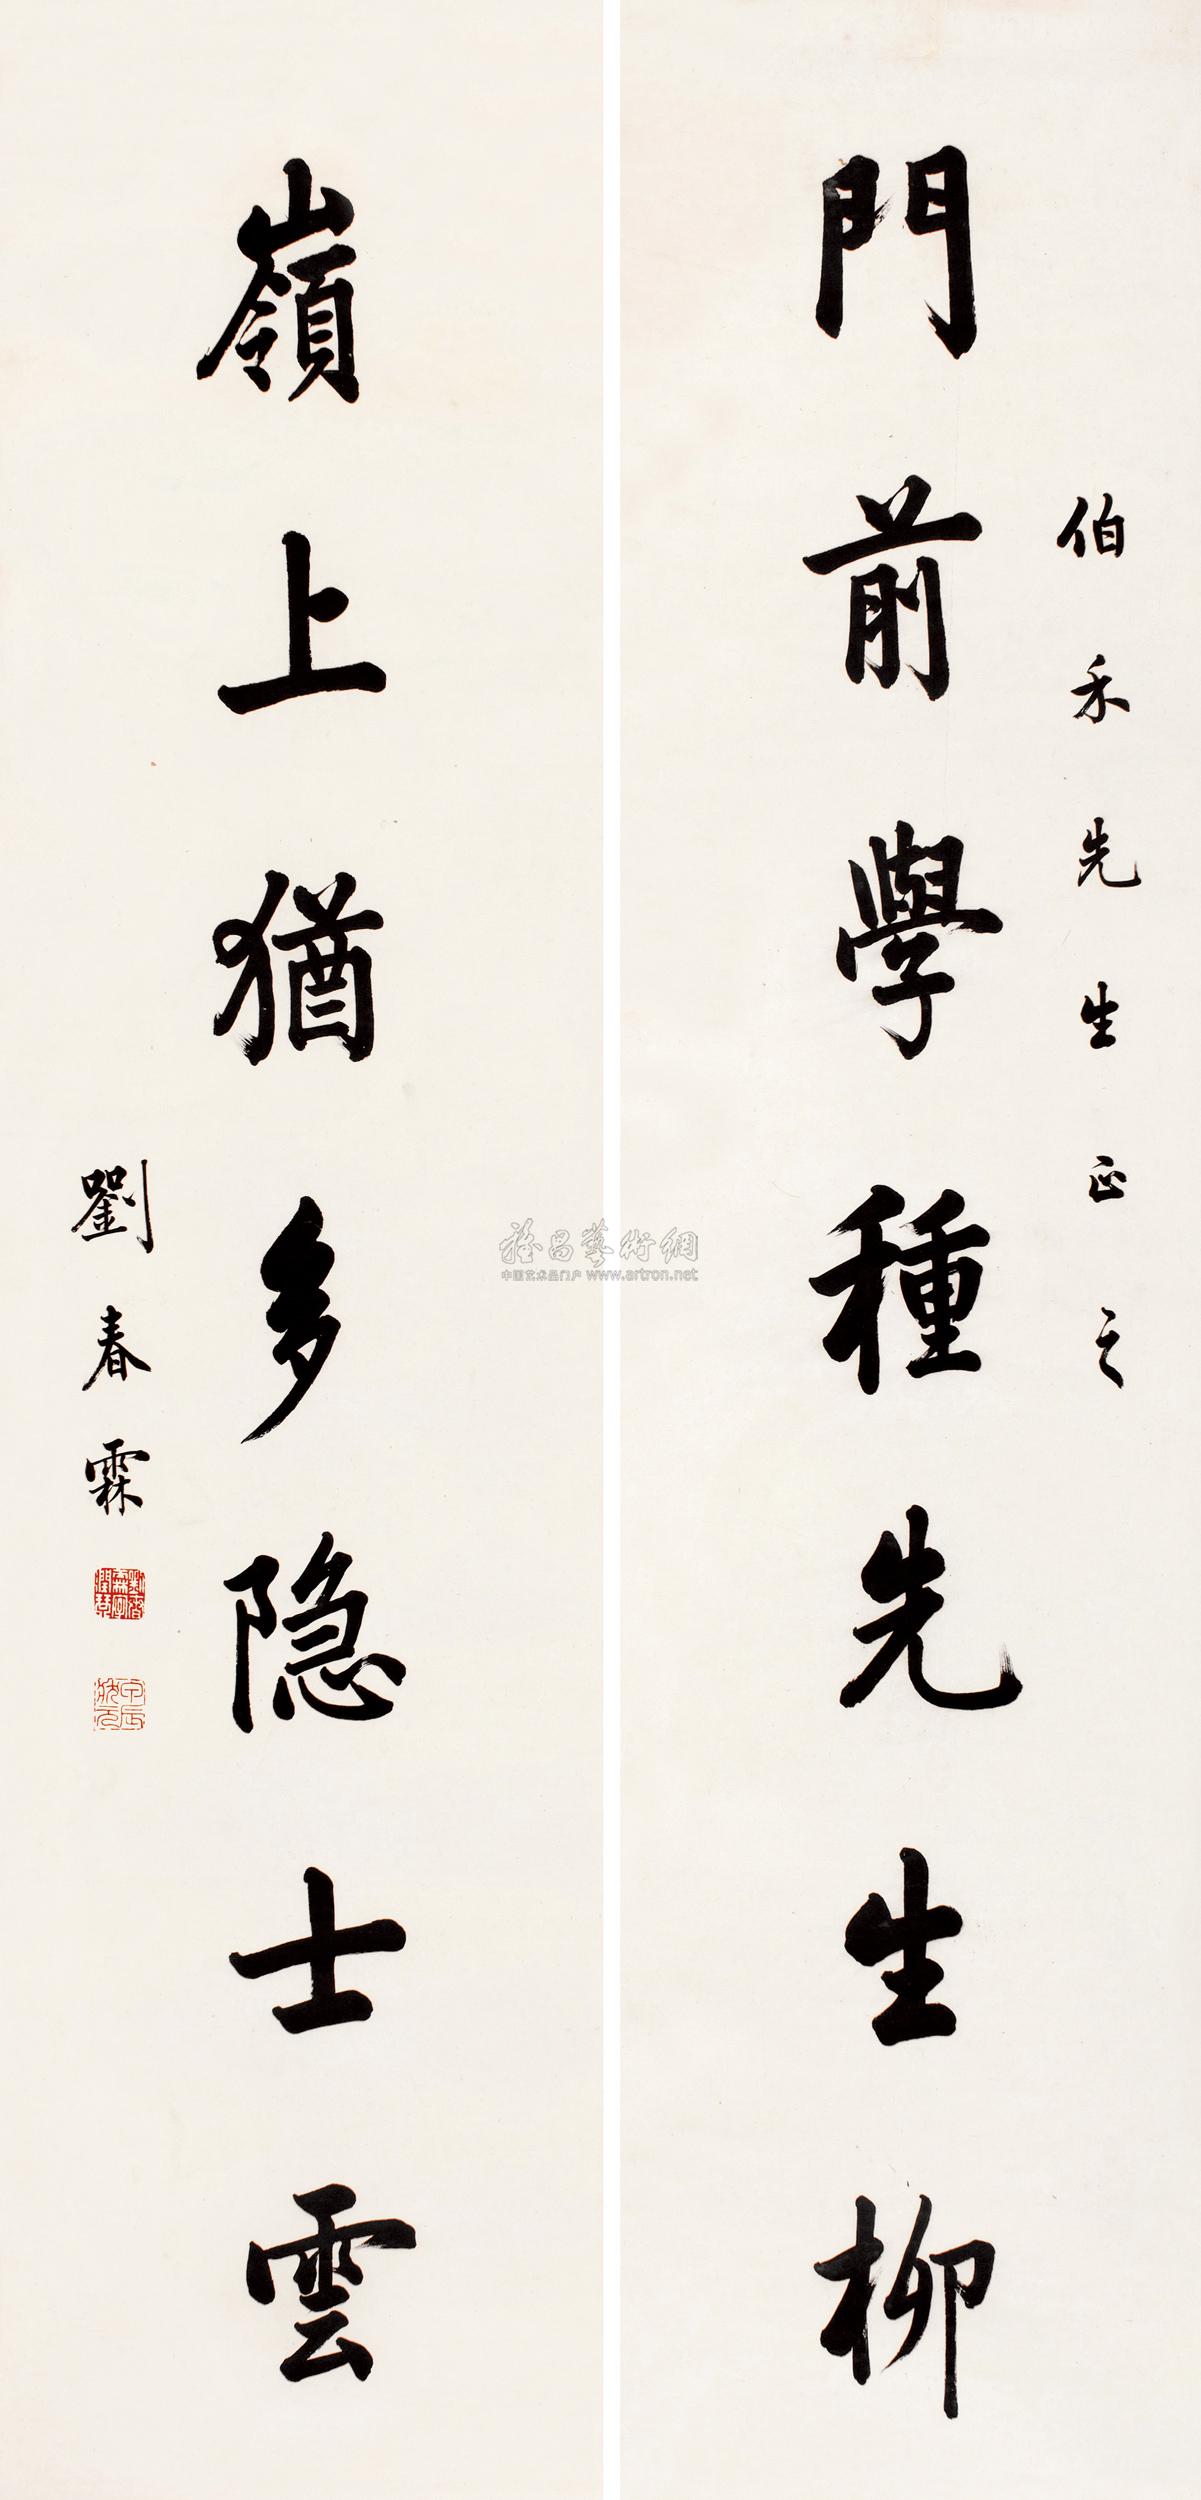 伯禾先生正之
門前學種先生柳
嶺上猶多隐士雲
劉春霖
雅昌藝術網
中国艺术品门户 www.artron.net